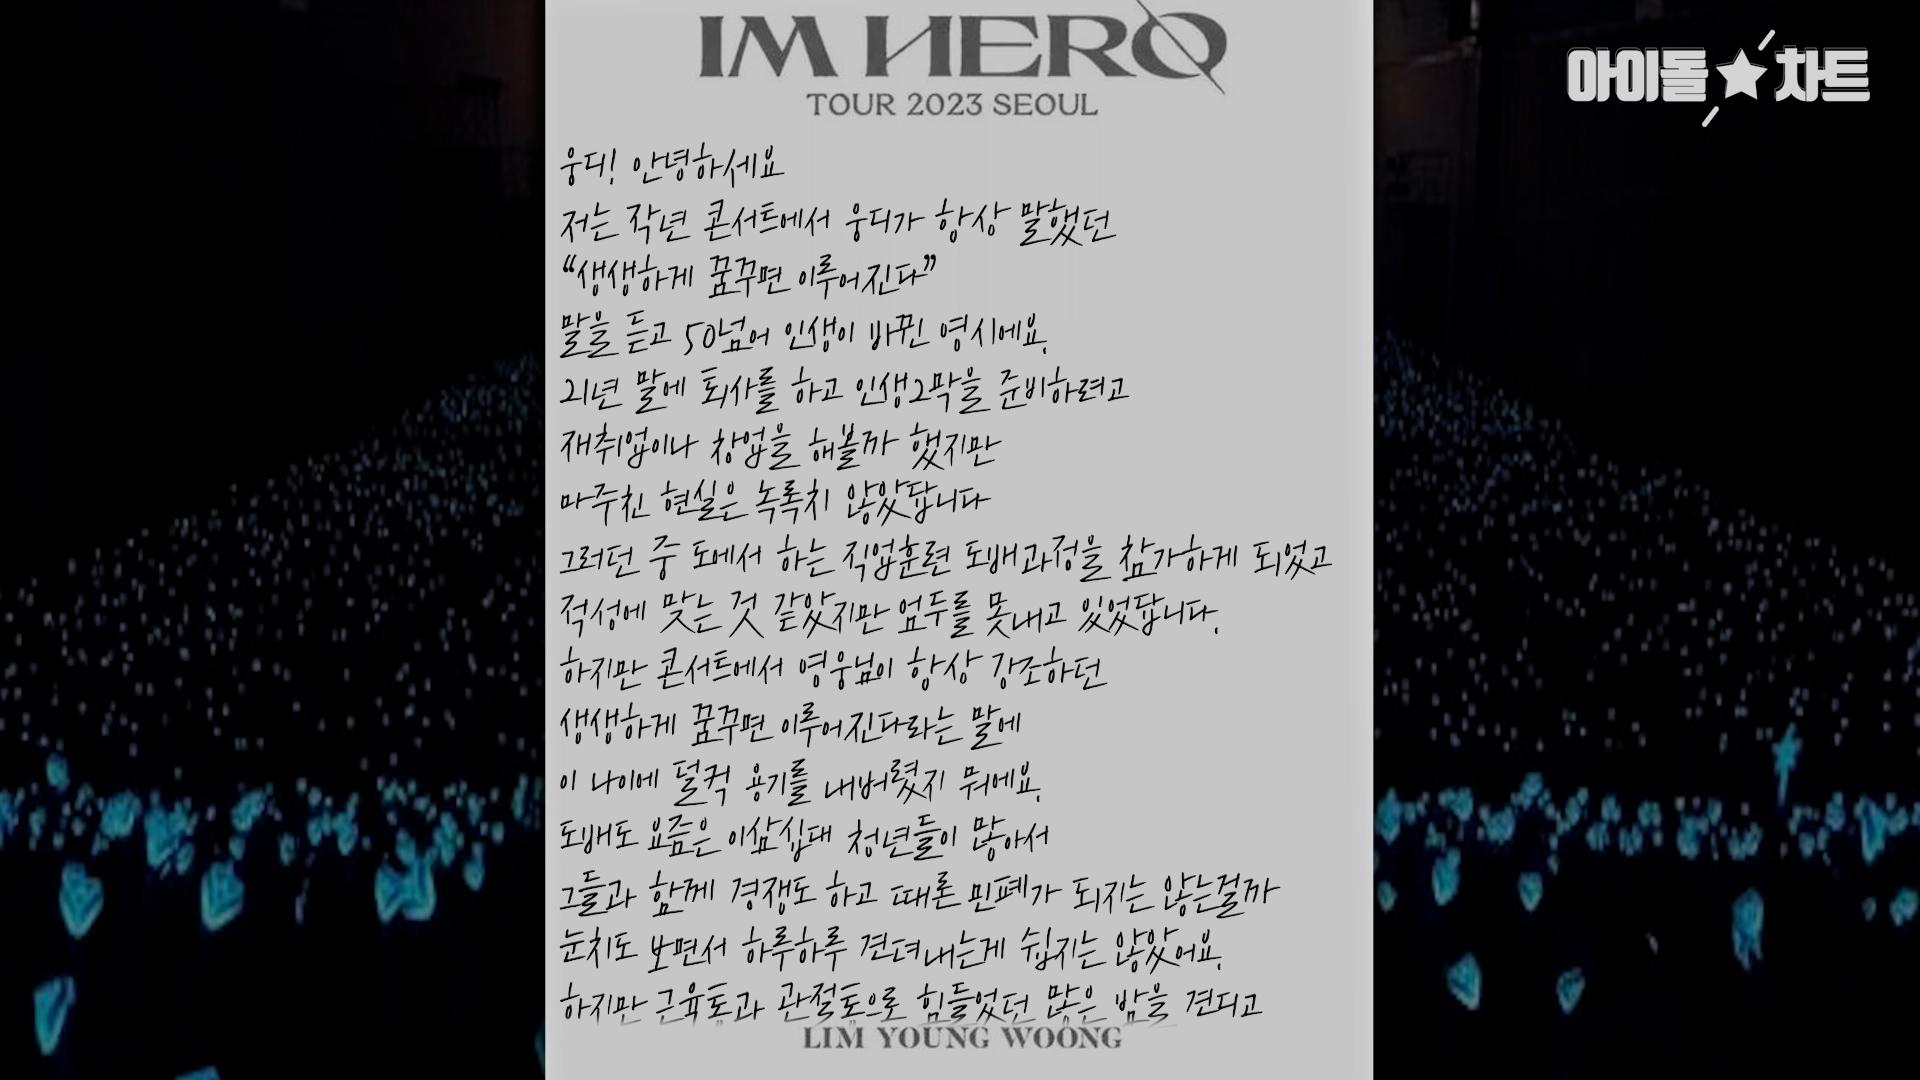 IM HERO
TOUR 2023 SEOUL
아이돌★차트
웅디! 안녕하세요
저는 작년 콘서트에서 웅디가 항상 말했던
“생생하게 꿈꾸면 이루어진다”
말을 듣고 50넘어 인생이 바뀐 영시에요.
21년 말에 퇴사를 하고 인생2막을 준비하려고
재취업이나 창업을 해볼까 했지만
마주친 현실은 녹록치 않았답니다
그러던 중 도에서 하는 직업훈련 도배과정을 참가하게 되었고
적성에 맞는 것 같았지만 엄두를 못내고 있었답니다.
하지만 콘서트에서 영웅님이 항상 강조하던
생생하게 꿈꾸면 이루어진다라는 말에
이 나이에 덜컥 용기를 내버렸지 뭐에요.
도배도 요즘은 이삼십대 청년들이 많아서
그들과 함께 경쟁도 하고 때론 민폐가 되지는 않는걸까
눈치도 보면서 하루하루 견뎌내는게 쉽지는 않았어요.
하지만 근육통과 관절통으로 힘들었던 많은 밤을 견디고
LIM YOUNG WOONG